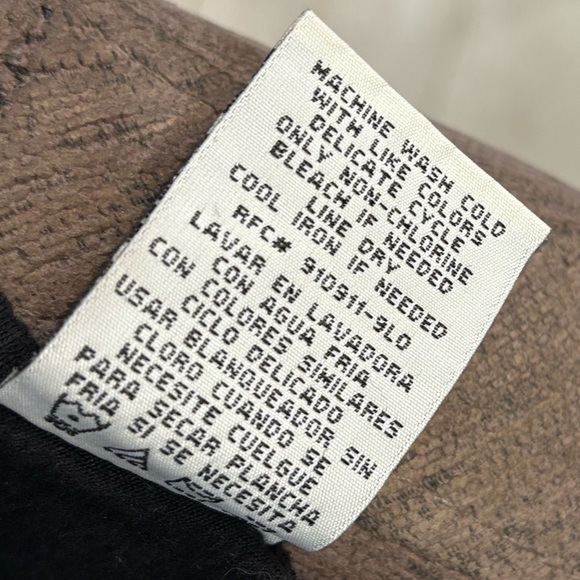 MACHINE WASH COLD
WITH LIKE COLORS
DELICATE CYCLE
ONLY NON-CHLORINE
BLEACH IF NEEDED
LINE DRY
COOL IRON IF NEEDED
RFC# 910911-9LO
LAVAR EN LAVADORA
CON CON AGUA FRIA
COLORES SIMILARES
CICLO DELICADO
USAR BLANQUEADOR SIN
CLORO CUANDO SE
NECESITE CUELGUE
PARA SECAR PLANCHA
FRIA SI SE NECESITA